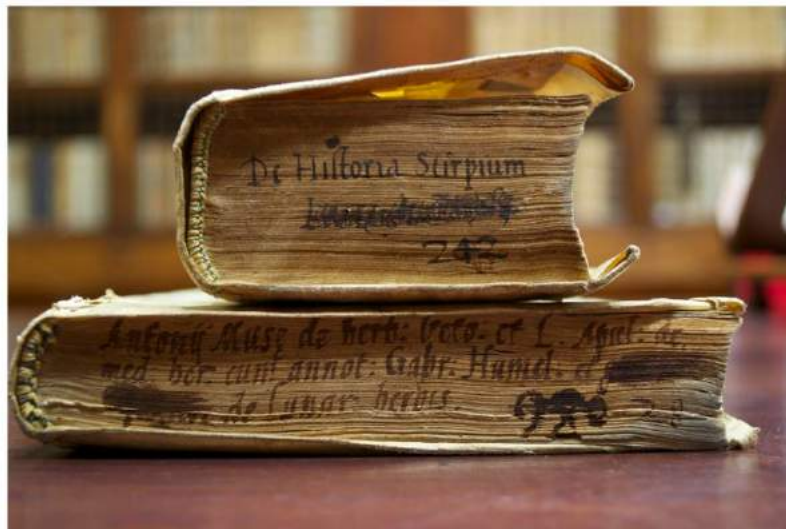 De Historia Stirpium
242
Antonij Musę de herb: Veto. et L. Apul. de.
med. her. cum annot: Gabr. Humel. et
de Lunar: herbis.
28